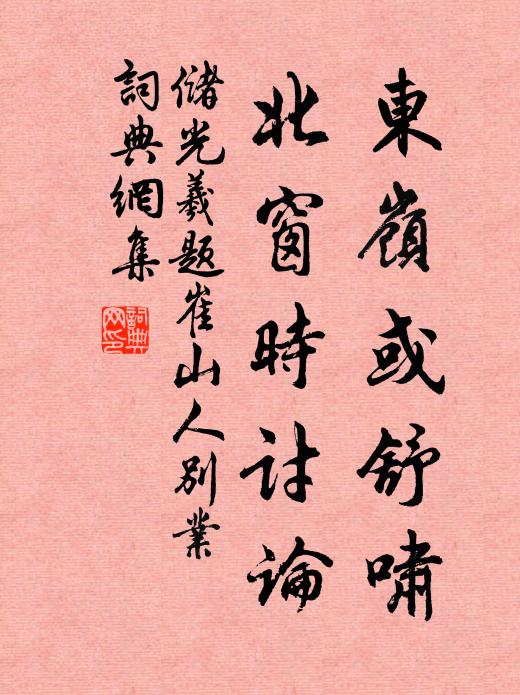 東嶺或舒嘯
北窗時討論
儲光羲題崔山人別業
詞典網集
詞典网印